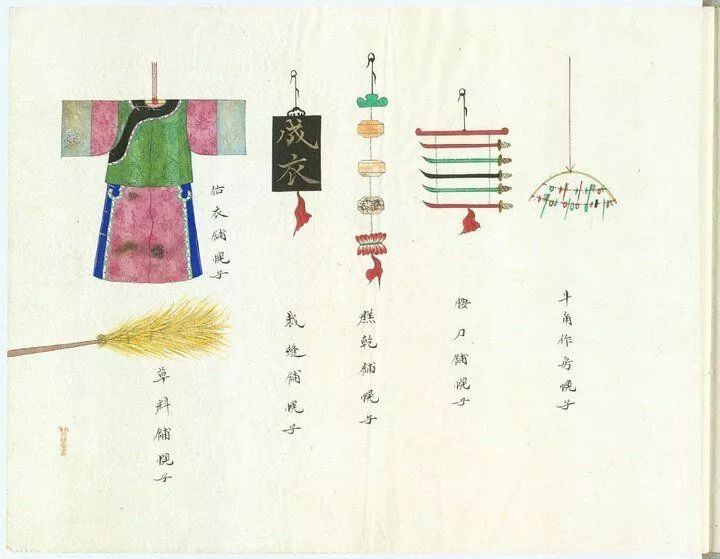 牛角作房幌子
腰刀舖幌子
糕乾舖幌子
成衣
裁縫舖幌子
估衣舖幌子
草料舖幌子